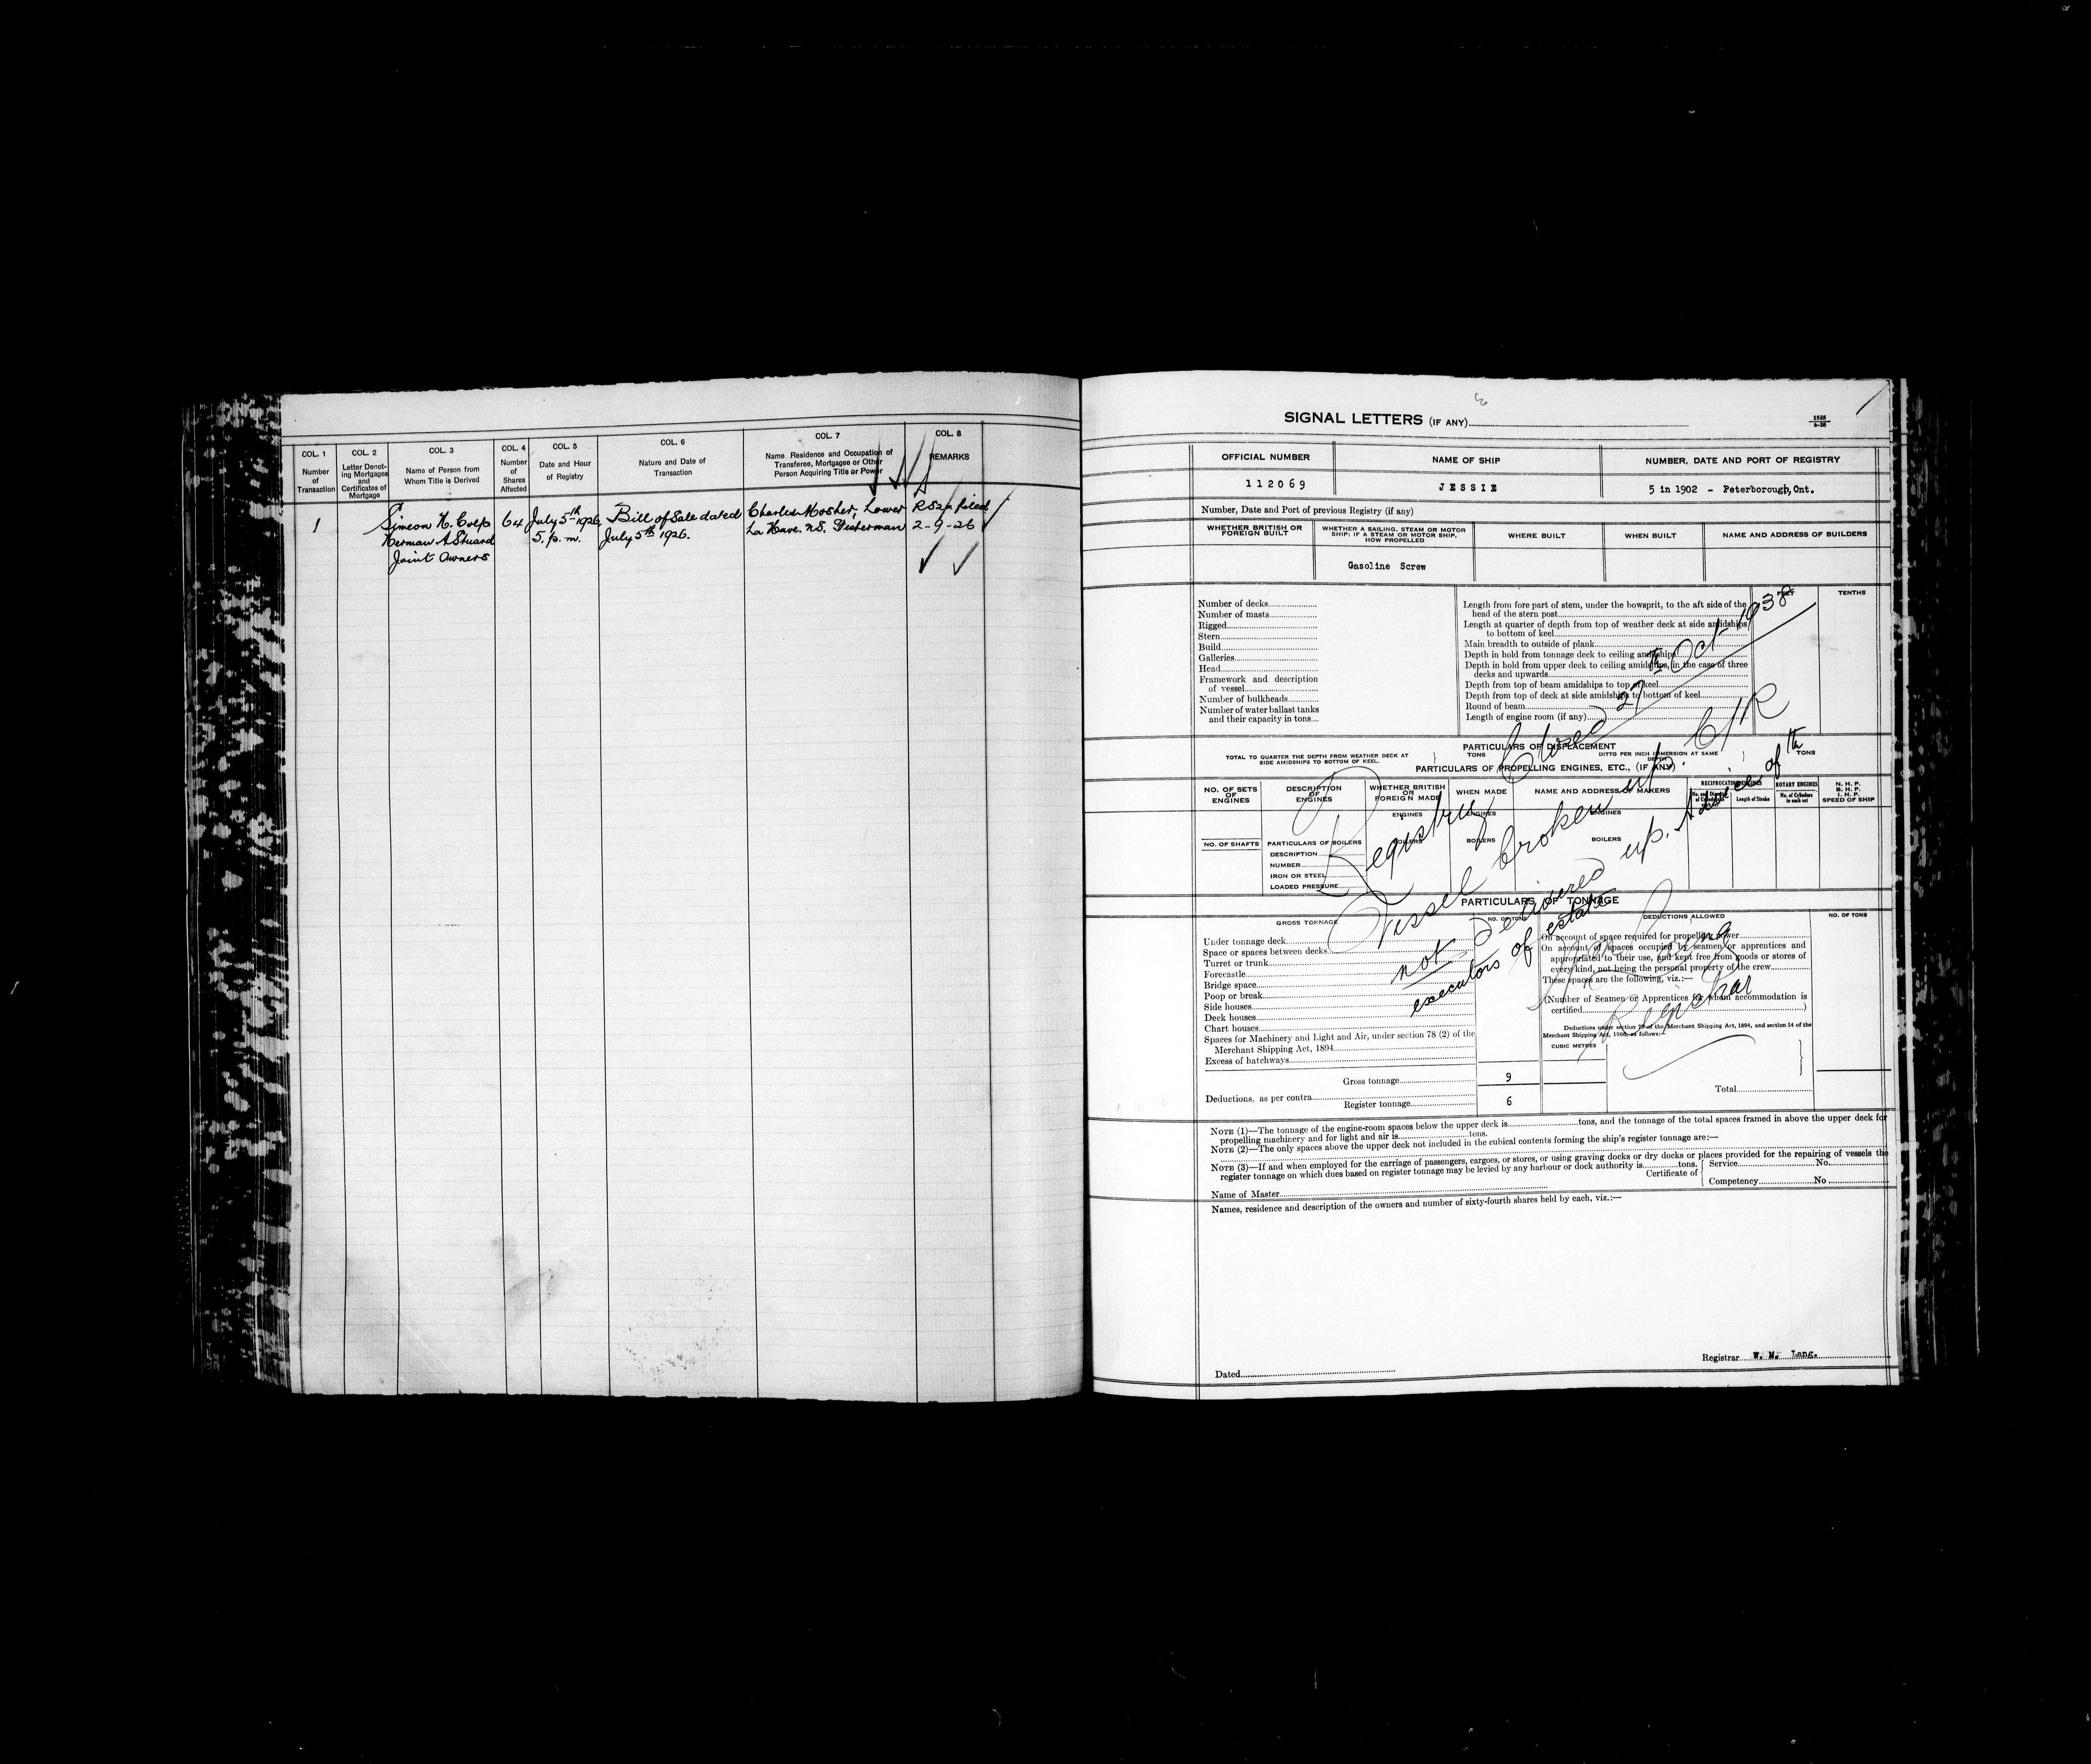 COL. 1
Number
of
Transaction
COL. 2
Letter Denot-
ing Mortgages
and
Certificates of
Mortgage
COL. 3
Name of Person from
Whom Title is Derived
COL. 4
Number
of
Shares
Affected
COL. 5
Date and Hour
of Registry
COL. 6
Nature and Date of
Transaction
COL. 7
Name, Residence and Occupation of
Transferee, Mortgagee or Other
Person Acquiring Title or Power
COL. 8
REMARKS
1
Simeon H. Corp
Herman A
Joint Owners
64
July 5th 1926
5. p. m.
Bill of Sale dated
July 5th 1926.
Charles Mosher, Lower
La Have. N.S. Fisherman
filed
2-9-26
SIGNAL LETTERS (IF ANY)
1535
6-38
OFFICIAL NUMBER
112069
NAME OF SHIP
JESSIE
NUMBER, DATE AND PORT OF REGISTRY
5 in 1902 - Peterborough, Ont.
Number, Date and Port of previous Registry (if any)
WHETHER BRITISH OR
FOREIGN BUILT
WHETHER A SAILING, STEAM OR MOTOR
SHIP; IF A STEAM OR MOTOR SHIP,
HOW PROPELLED
WHERE BUILT
WHEN BUILT
NAME AND ADDRESS OF BUILDERS
Gasoline Screw
Number of decks
Number of masts
Rigged
Stern
Build
Galleries
Head
Framework and description
of vessel
Number of bulkheads
Number of water ballast tanks
and their capacity in tons
FEET
TENTHS
Length from fore part of stem, under the bowsprit, to the aft side of the
head of the stern post
Length at quarter of depth from top of weather deck at side amidships
to bottom of keel
Main breadth to outside of plank
Depth in hold from tonnage deck to ceiling amidships
Depth in hold from upper deck to ceiling amidships, in the case of three
decks and upwards
Depth from top of beam amidships to top of keel
Depth from top of deck at side amidships to bottom of keel
Round of beam
Length of engine room (if any)
PARTICULARS OF DISPLACEMENT
TOTAL TO QUARTER THE DEPTH FROM WEATHER DECK AT
SIDE AMIDSHIPS TO BOTTOM OF KEEL.
TONS
DITTO PER INCH IMMERSION AT SAME
DEPTH
TONS
PARTICULARS OF PROPELLING ENGINES, ETC., (IF ANY)
NO. OF SETS
OF
ENGINES
DESCRIPTION
OF
ENGINES
WHETHER BRITISH
OR
FOREIGN MADE
WHEN MADE
NAME AND ADDRESS OF MAKERS
RECIPROCATING ENGINES
Length of Stroke
ROTARY ENGINES
No. of Cylinders
in each set
N. H. P.
B. H. P.
I. H. P.
SPEED OF SHIP
ENGINES
ENGINES
ENGINES
NO. OF SHAFTS
PARTICULARS OF BOILERS
DESCRIPTION
NUMBER
IRON OR STEEL
LOADED PRESSURE
BOILERS
BOILERS
BOILERS
Registry Closed 27th Oct 1938
Vessel broken up. C/R
not delivered up. Advice of th
executors of estate
Registrar
PARTICULARS OF TONNAGE
GROSS TONNAGE
NO. OF TONS
DEDUCTIONS ALLOWED
NO. OF TONS
Under tonnage deck
Space or spaces between decks
Turret or trunk
Forecastle
Bridge space
Poop or break
Side houses
Deck houses
Chart houses
Spaces for Machinery and Light and Air, under section 78 (2) of the
Merchant Shipping Act, 1894
Excess of hatchways
Gross tonnage
9
Deductions, as per contra
Register tonnage
6
On account of space required for propelling power
On account of spaces occupied by seamen or apprentices and
appropriated to their use, and kept free from goods or stores of
every kind, not being the personal property of the crew
These spaces are the following, viz.:—
(Number of Seamen or Apprentices for whom accommodation is
certified )
Deductions under section 79 of the Merchant Shipping Act, 1894, and section 54 of the
Merchant Shipping Act, 1906, as follows:—
CUBIC METRES
Total
NOTE (1)—The tonnage of the engine-room spaces below the upper deck is tons, and the tonnage of the total spaces framed in above the upper deck for
propelling machinery and for light and air is tons.
NOTE (2)—The only spaces above the upper deck not included in the cubical contents forming the ship's register tonnage are:—
NOTE (3)—If and when employed for the carriage of passengers, cargoes, or stores, or using graving docks or dry docks or places provided for the repairing of vessels the
register tonnage on which dues based on register tonnage may be levied by any harbour or dock authority is tons.
Certificate of { Service No.
Competency No
Name of Master
Names, residence and description of the owners and number of sixty-fourth shares held by each, viz.:—
Dated
Registrar W. M. Lang.